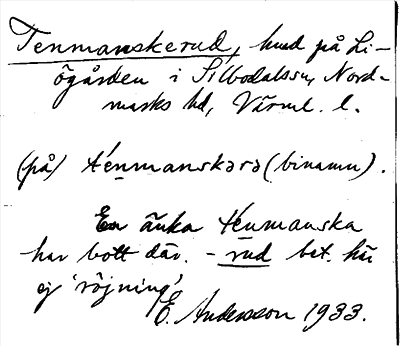 Tenmanskerud, hmd på Li-
ögården i Silbodals sn, Nord-
marks hd, Värml. l.
(på) ténmanskərə (binamn).
En änka Tenmanska
har bott där. - rud bet. här
ej 'röjning'
E. Andersson 1933.